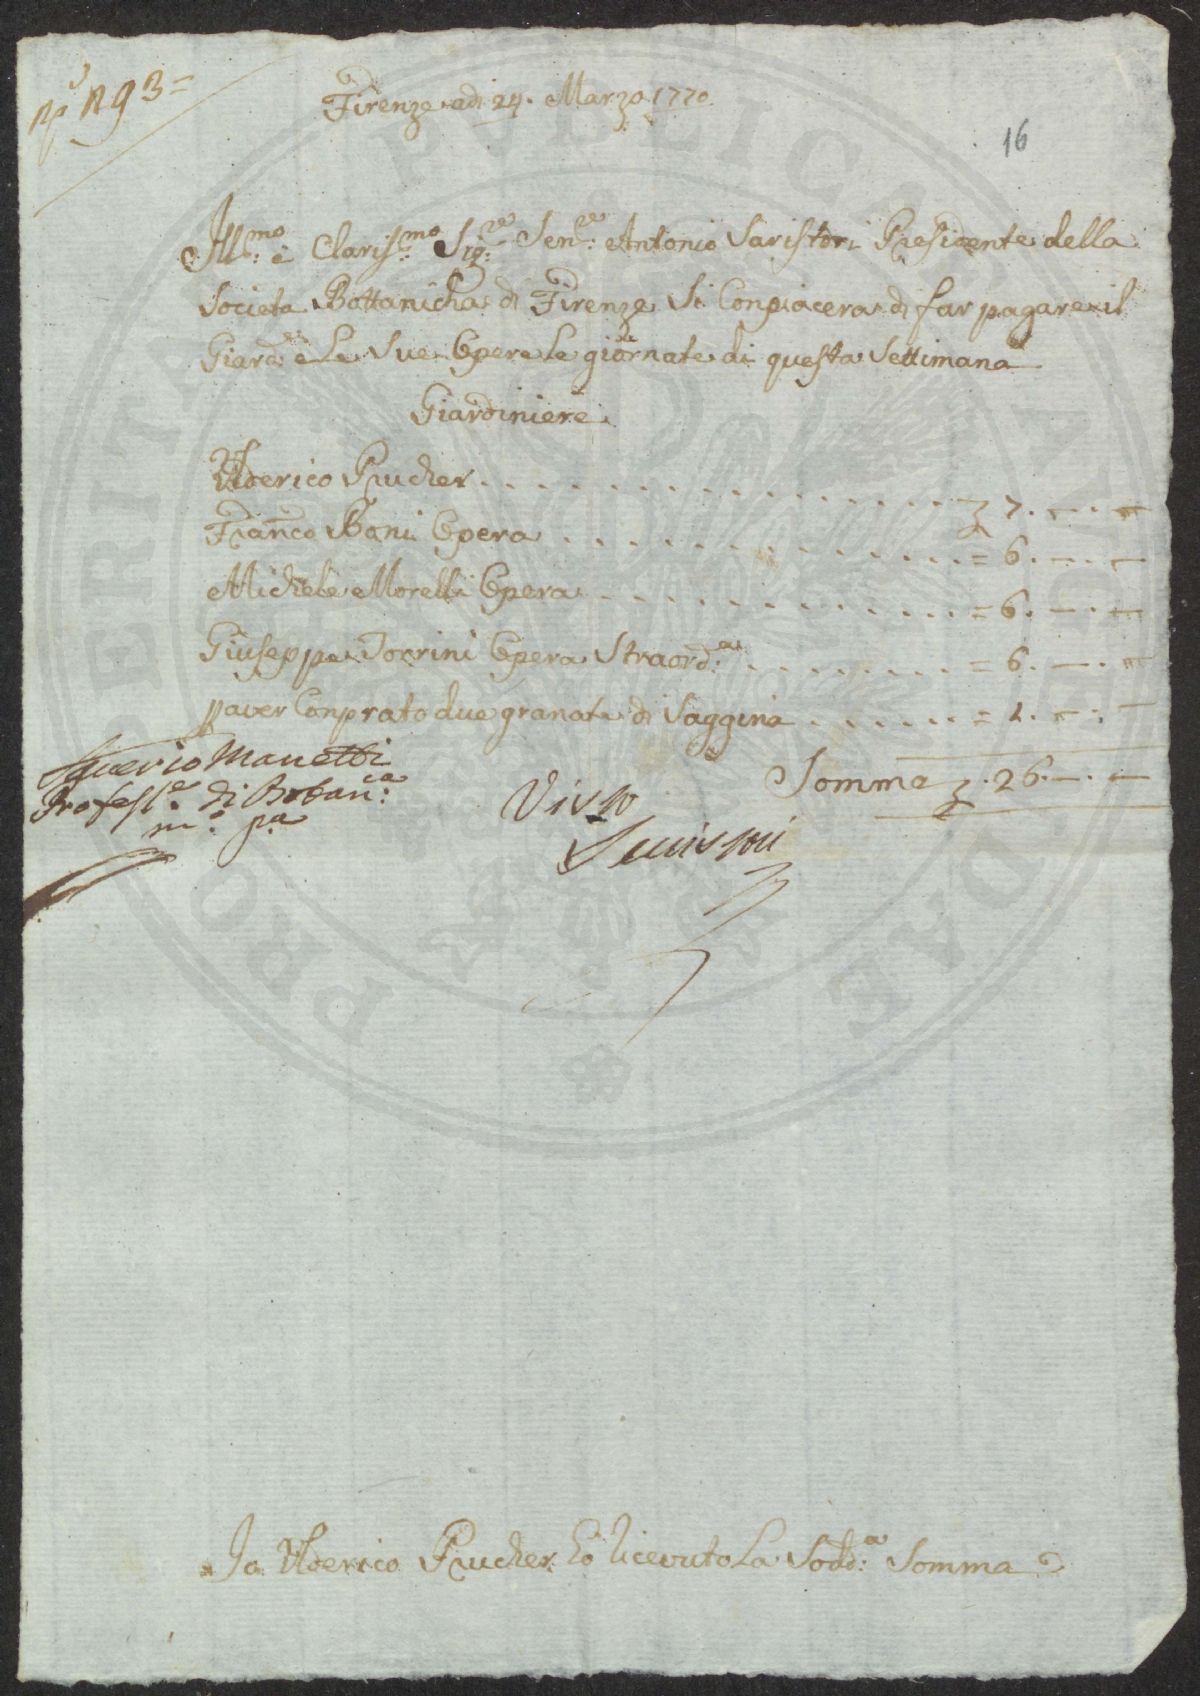 N 93=
Firenze adi 24. Marzo 1770.
16
Ill:mo è Claris:mo Sig:re Sen:re Antonio Saristori Presidente della
Societa Bottanicha di Firenze Si Conpiacera di far pagare il
Giard: e Le Sue Opere Le giornate di questa Settimana
Giardiniere
Ulderico Prucher . . . . . . . . . . . . . . . 7. —. —
Franco Boni Opera . . . . . . . . . . . . = 6. —. —
Michele Morelli Opera . . . . . . . . . . . = 6. —. —
Giuseppe Torrini Opera Straord:a . . . . . . . . = 6. —. —
p aver Conprato due granate di Saggina . . . . . . = 1. —. —
Somma 26. —. —
Saverio Manetti
Profess:e di Botan:ca
m:o p:a
Visto
Serristori
Io Ulderico Prucher ho ricevuto La Sodd:a Somma
PROPERITAS PUBLICAE AVGENDAE